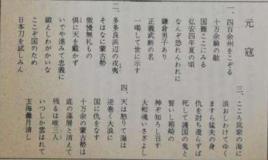 元寇
一、四百余州をこぞる
十万余騎の敵
国難ここに見る
弘安四年夏の頃
なんぞ怖れんわれに
鎌倉男子あり
正義武断の名
一喝して世に示す
二、多々良浜辺の戎夷
そはなに蒙古勢
傲慢無礼もの
倶に天を戴かず
いでや進みて忠義に
鍛えしわがかいな
ここぞ国のため
日本刀を試しみん
三、こころ筑紫の海に
浪おしわけてゆく
ますら猛夫の身
仇を討ち還らずば
死して護国の鬼と
誓いし箱崎の
神ぞ知ろし召す
大和魂いさぎよし
四、天は怒りて海は
逆巻く大浪に
国に仇をなす
十万余の蒙古勢は
底の藻屑と消えて
残るは唯三人
いつしか雲はれて
玄海灘月清し